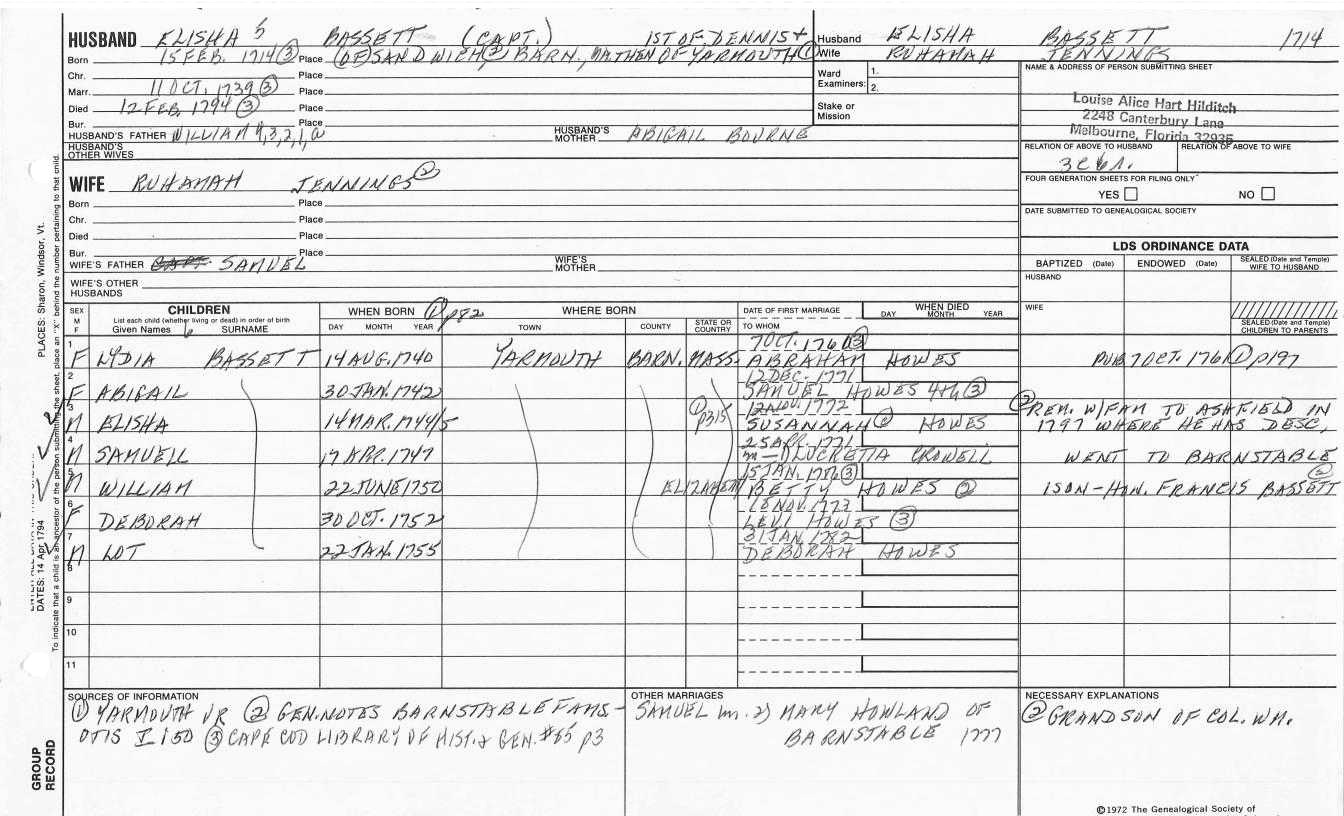 HUSBAND ELISHA 5 BASSETT (CAPT.) 1ST OF DENNIS +
Born 15 FEB. 1714 (3) Place (OF) SANDWICH (3) BARN., MA. THEN OF YARMOUTH (1)
Chr. Place
Marr. 11 OCT. 1739 (3) Place
Died 12 FEB. 1794 (3) Place
Bur. Place
HUSBAND'S FATHER WILLIAM 4,3,2,1,a HUSBAND'S MOTHER ABIGAIL BOURNE
HUSBAND'S OTHER WIVES
Husband ELISHA BASSETT 1714
Wife RUHAMAH JENNINGS
Ward Examiners: 1.
2.
Stake or Mission
NAME & ADDRESS OF PERSON SUBMITTING SHEET
Louise Alice Hart Hilditch
2248 Canterbury Lane
Melbourne, Florida 32935
RELATION OF ABOVE TO HUSBAND RELATION OF ABOVE TO WIFE
FOUR GENERATION SHEETS FOR FILING ONLY
YES NO
DATE SUBMITTED TO GENEALOGICAL SOCIETY
WIFE RUHAMAH JENNINGS (2)
Born Place
Chr. Place
Died Place
Bur. Place
WIFE'S FATHER CAPT. SAMUEL WIFE'S MOTHER
WIFE'S OTHER HUSBANDS
LDS ORDINANCE DATA
BAPTIZED (Date) ENDOWED (Date) SEALED (Date and Temple) WIFE TO HUSBAND
HUSBAND
WIFE
SEALED (Date and Temple) CHILDREN TO PARENTS
SEX M F CHILDREN WHEN BORN (1) p82 WHERE BORN DATE OF FIRST MARRIAGE WHEN DIED
List each child (whether living or dead) in order of birth
Given Names SURNAME DAY MONTH YEAR TOWN COUNTY STATE OR COUNTRY TO WHOM DAY MONTH YEAR
7 OCT. 1761 (3)
1 F LYDIA 6 BASSETT 14 AUG. 1740 YARMOUTH BARN. MASS. ABRAHAM HOWES PUB 7 OCT. 1761 (1) p197
12 DEC. 1771
2 F ABIGAIL 30 JAN. 1742 SAMUEL HOWES 4th (3)
12 NOV. 1772
3 M ELISHA 14 MAR. 1744/5 (1) p315 SUSANNAH (2) HOWES (2) REM. W/FAM TO ASHFIELD IN 1797 WHERE HE HAS DESC,
25 APR. 1771
4 M SAMUELL 17 APR. 1747 LUCRETIA CROWELL WENT TO BARNSTABLE
15 JAN. 1776 (3)
5 M WILLIAM 22 JUNE 1750 ELIZABETH/BETTY HOWES (2) 1 SON - HON. FRANCIS BASSETT (2)
18 NOV. 1773
6 F DEBORAH 30 OCT. 1752 LEVI HOWES (3)
31 JAN. 1782
7 M LOT 22 JAN. 1755 DEBORAH HOWES
8
9
10
11
SOURCES OF INFORMATION
(1) YARMOUTH VR (2) GEN. NOTES BARNSTABLE FAMS. -
OTIS I 150 (3) CAPE COD LIBRARY OF HIST. & GEN. #65 p3
OTHER MARRIAGES
SAMUEL m. 2) MARY HOWLAND OF
BARNSTABLE 1777
NECESSARY EXPLANATIONS
(2) GRANDSON OF COL. WM.
©1972 The Genealogical Society of
DATES: 14 Apr 1794 PLACES: Sharon, Windsor, Vt.
To indicate that a child is an ancestor of the person submitting the sheet, place an "X" behind the number pertaining to that child.
GROUP RECORD